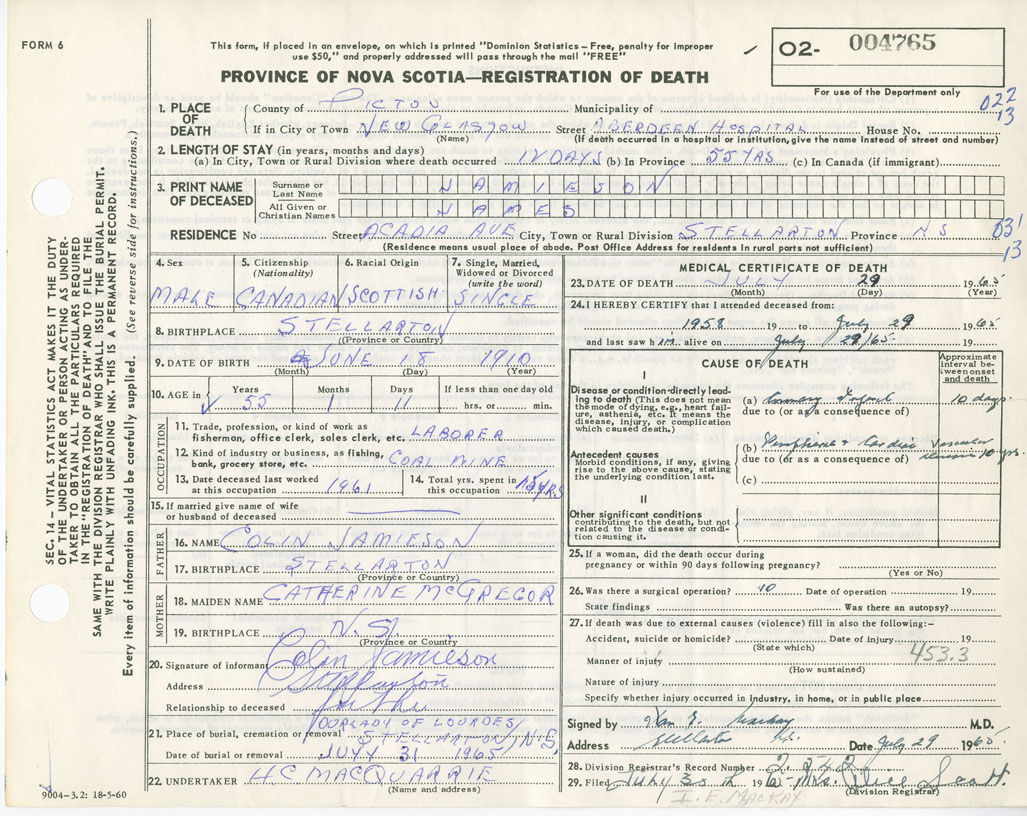 FORM 6
This form, if placed in an envelope, on which is printed "Dominion Statistics – Free, penalty for improper
use $50," and properly addressed will pass through the mail "FREE"
PROVINCE OF NOVA SCOTIA—REGISTRATION OF DEATH
02- 004765
For use of the Department only
022
13
SEC. 14 – VITAL STATISTICS ACT MAKES IT THE DUTY
OF THE UNDERTAKER OR PERSON ACTING AS UNDER-
TAKER TO OBTAIN ALL THE PARTICULARS REQUIRED
IN THE "REGISTRATION OF DEATH" AND TO FILE THE
SAME WITH THE DIVISION REGISTRAR WHO SHALL ISSUE THE BURIAL PERMIT.
WRITE PLAINLY WITH UNFADING INK. THIS IS A PERMANENT RECORD.
Every item of information should be carefully supplied. (See reverse side for instructions.)
1. PLACE OF DEATH
County of PICTOU Municipality of
If in City or Town NEW GLASGOW Street ABERDEEN HOSPITAL House No.
(Name) (If death occurred in a hospital or institution, give the name instead of street and number)
2. LENGTH OF STAY (in years, months and days)
(a) In City, Town or Rural Division where death occurred 12 DAYS (b) In Province 55 YRS (c) In Canada (if immigrant)
3. PRINT NAME OF DECEASED
Surname or Last Name JAMIESON
All Given or Christian Names JAMES
RESIDENCE No Street ACADIA AVE City, Town or Rural Division STELLARTON Province N S
031
13
(Residence means usual place of abode. Post Office Address for residents in rural parts not sufficient)
4. Sex
MALE
5. Citizenship (Nationality)
CANADIAN
6. Racial Origin
SCOTTISH
7. Single, Married, Widowed or Divorced (write the word)
SINGLE
8. BIRTHPLACE STELLARTON
(Province or Country)
9. DATE OF BIRTH JUNE 18 1910
(Month) (Day) (Year)
10. AGE in
Years 55
Months 1
Days 11
If less than one day old
hrs. or min.
OCCUPATION
11. Trade, profession, or kind of work as
fisherman, office clerk, sales clerk, etc. LABORER
12. Kind of industry or business, as fishing,
bank, grocery store, etc. COAL MINE
13. Date deceased last worked
at this occupation 1961
14. Total yrs. spent in
this occupation 15 YRS
15. If married give name of wife
or husband of deceased
FATHER
16. NAME COLIN JAMIESON
17. BIRTHPLACE STELLARTON
(Province or Country)
MOTHER
18. MAIDEN NAME CATHERINE McGREGOR
19. BIRTHPLACE N.S.
(Province or Country)
20. Signature of informant Colin Jamieson
Address Stellarton
Relationship to deceased
OUR LADY OF LOURDES
21. Place of burial, cremation or removal STELLARTON, N.S.
Date of burial or removal JULY 31 1965
22. UNDERTAKER H.C MACQUARRIE
(Name and address)
9004–3.2: 18-5-60
MEDICAL CERTIFICATE OF DEATH
23. DATE OF DEATH JULY 29 1965
(Month) (Day) (Year)
24. I HEREBY CERTIFY that I attended deceased from:
1958 19 to July 29 1965
and last saw him alive on July 29/65 19
CAUSE OF DEATH
Approximate interval between onset and death
I
Disease or condition directly lead-
ing to death (This does not mean
the mode of dying, e.g., heart fail-
ure, asthenia, etc. It means the
disease, injury, or complication
which caused death.)
(a) Coronary Infarct 10 days
due to (or as a consequence of)
Antecedent causes
Morbid conditions, if any, giving
rise to the above cause, stating
the underlying condition last.
(b) Peripheral + Cardiac Vascular
due to (or as a consequence of) disease 10 yrs.
(c)
II
Other significant conditions
contributing to the death, but not
related to the disease or condi-
tion causing it.
25. If a woman, did the death occur during
pregnancy or within 90 days following pregnancy?
(Yes or No)
26. Was there a surgical operation? no Date of operation 19
State findings Was there an autopsy?
27. If death was due to external causes (violence) fill in also the following:-
Accident, suicide or homicide? Date of injury 19
(State which)
453.3
Manner of injury
(How sustained)
Nature of injury
Specify whether injury occurred in industry, in home, or in public place
Signed by M.D.
Address Stellarton N.S. Date July 29 1965
28. Division Registrar's Record Number
29. Filed July 30th 196 Mrs. Alice Scott.
(Division Registrar)
I. E. MacKAY